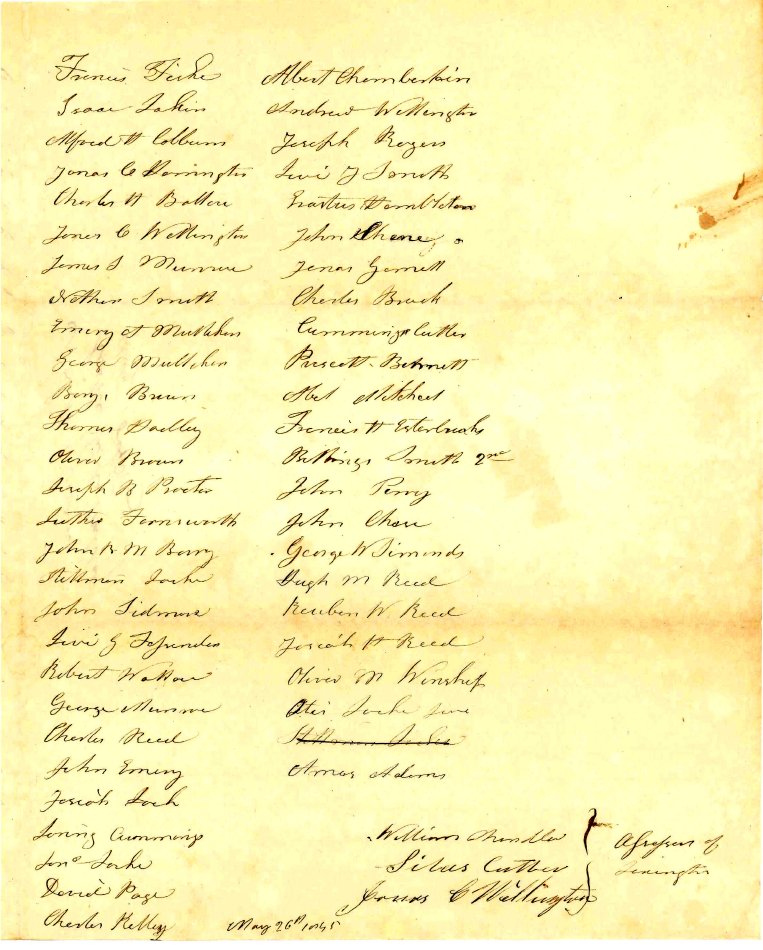 Francis Fiske
Isaac Lakin
Alfred H Colburn
Jonas C
Charles H
Jonas C Wellington
James S Munroe
Nathan Smith
Emery A
George
Benj. Brown
Thomas Dudley
Oliver Brown
Joseph B Proctor
Luther Farnsworth
John B M Barry
Stillman Locke
John Lidmore
Levi G Fessenden
Robert Wallace
George Munroe
Charles Reed
John Emery
Josiah Lock
Loring Cummings
Jona Locke
David Page
Charles Kelley
Albert Chamberlin
Andrew Wellington
Joseph Rogers
Levi J Smith
Erastus Hambleton
John Chaney
Jonas Gammell
Charles Brack
Cummings Cutter
Prescott Bennett
Abel Mitchel
Francis H Esterbrooks
Billings Smith 2nd
John Perry
John Chase
George W Simonds
Hugh M Reed
Reuben W. Reed
Josiah H Reed
Oliver M Winship
Otis Locke June
Stillman Locke
Amos Adams
William Chandler
Silas Cutler
Jonas C Wellington
Assessors of
Lexington
May 26th 1845